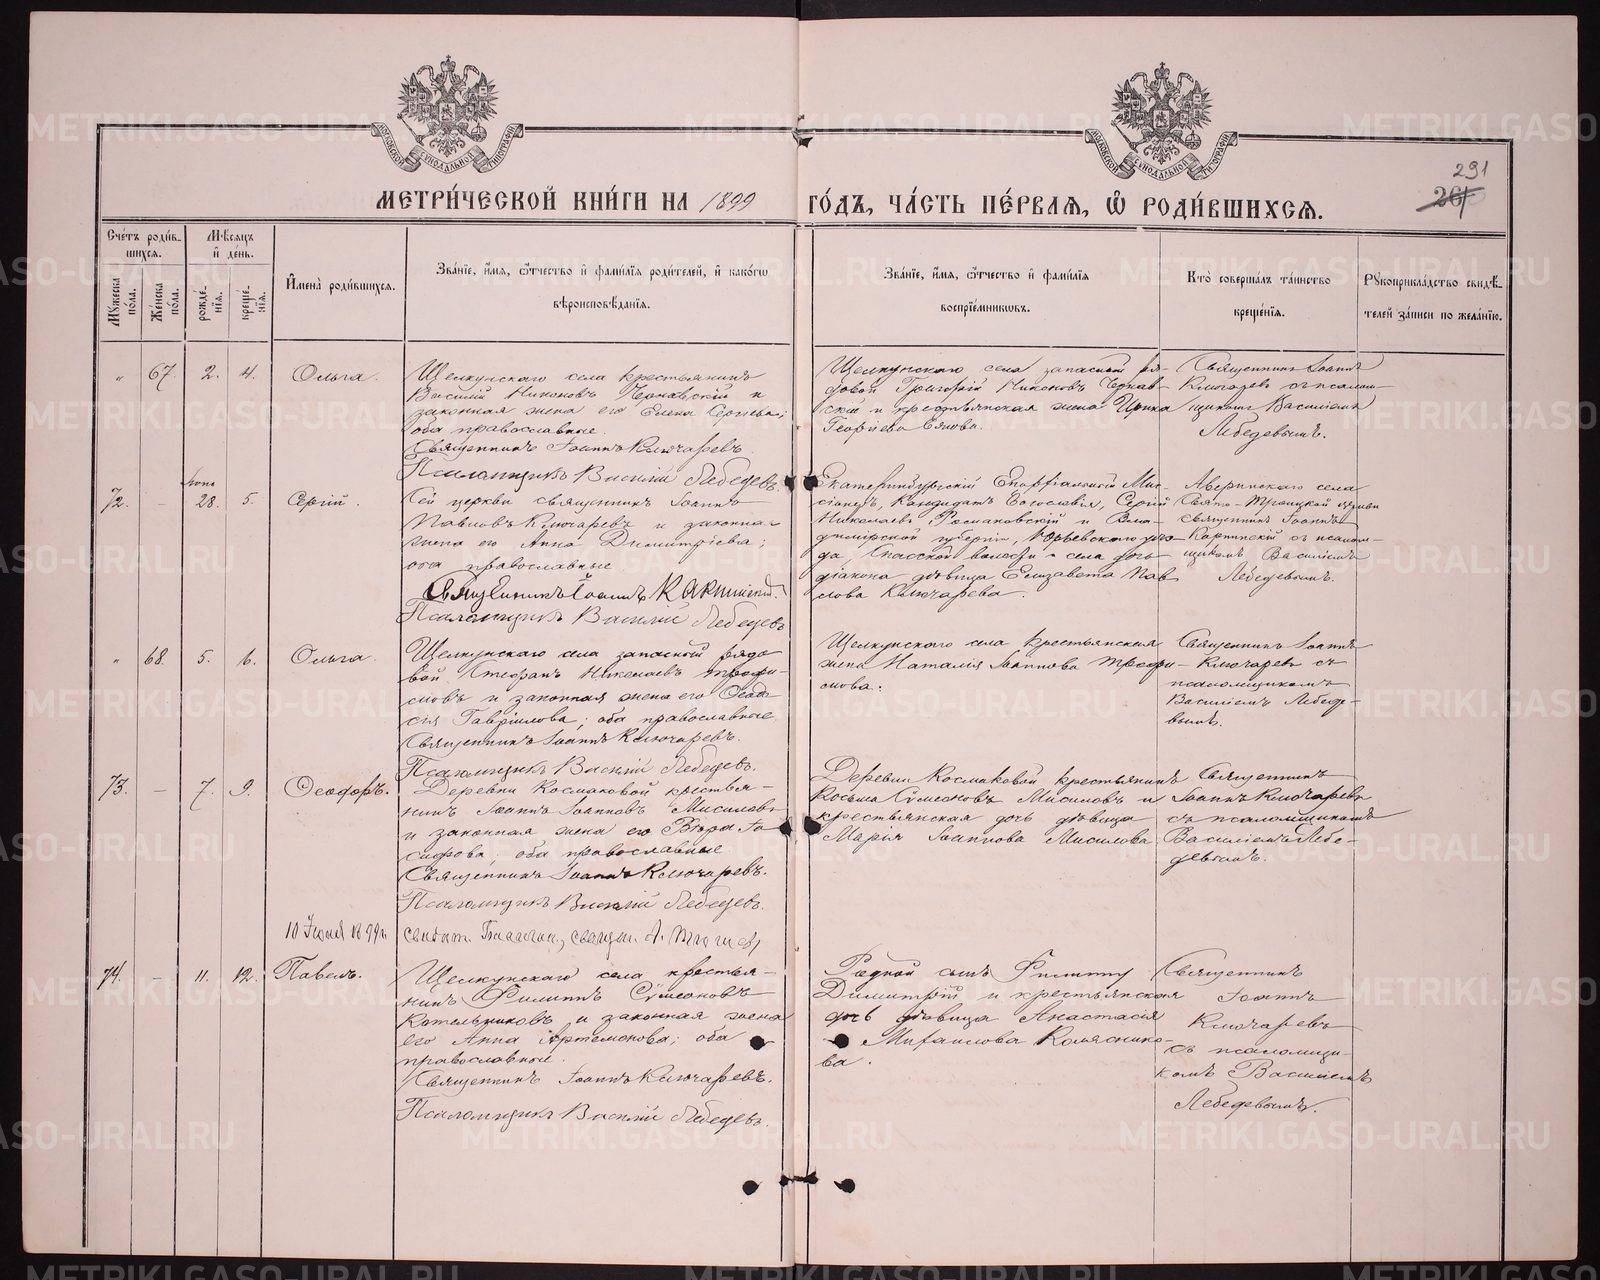 МОСКОВСКОЙ СѴНОДАЛЬНОЙ ТИПОГРАФІИ
МОСКОВСКОЙ СѴНОДАЛЬНОЙ ТИПОГРАФІИ
291
МЕТРИ́ЧЕСКОЙ КНИ́ГИ НА 1899 ГО́ДЪ, ЧА́СТЬ ПЕ́РВАЯ, Ѡ РОДИ́ВШИХСЯ.
Сче́тъ роди́вшихся.
Му́жеска по́ла.
Же́нска по́ла.
Мѣ́сяцъ и де́нь.
рожде́нїя.
креще́нїя.
Имена̀ роди́вшихся.
Зва́нїе, и́мя, ѻ́тчество и фами́лїя роди́телей, и како́гѡ
вѣроисповѣ́данїя.
Зва́нїе, и́мя, ѻ́тчество и фами́лїя
воспрїе́мникѡвъ.
Кто̀ соверша́лъ та́инство
креще́нїя.
Рꙋкоприкла́дство свидѣ́-
телей за́писи по жела́нїю.
" 67. 2. 4. Ольга.
Щелкунскаго села крестьянинъ
Василій Никоновъ Чернавскій и
законная жена его Елена Сергіева;
оба православные.
Священникъ Іоаннъ Ключаревъ.
Псаломщикъ Василій Лебедевъ.
Щелкунскаго села запасной ря-
довой Григорій Никоновъ Чернав-
скій и крестьянская жена Ирина
Георгіева
Священникъ Іоаннъ
Ключаревъ съ псалом-
щикомъ Василіемъ
Лебедевымъ.
72. – 28. 5. Сергій.
Сей церкви священникъ Іоаннъ
Павловъ Ключаревъ и законная
жена его Анна Димитріева;
оба православные.
Священникъ Іоаннъ
Псаломщикъ Василій Лебедевъ
Екатеринбургскій Епархіальный Мис-
сіонеръ, Кандидатъ Богословія, Сергій
Николаевъ Романовскій и Вла-
димірской губерніи, Юрьевскаго уѣз-
да, Спасской волости села дочь
діакона дѣвица Елизавета Пав-
лова Ключарева.
Аверинскаго села
Свято-Троицкой церкви
священникъ Іоаннъ
съ псалом-
щикомъ Василіемъ
Лебедевымъ.
" 68. 5. 6. Ольга.
Щелкунскаго села запасной рядо-
вой Стефанъ Николаевъ Трофи-
мовъ и законная жена его Ѳеодо-
сія Гавріилова; оба православные.
Священникъ Іоаннъ Ключаревъ.
Псаломщикъ Василій Лебедевъ.
Щелкунскаго села крестьянская
жена Наталія Іоаннова Трофи-
мова.
Священникъ Іоаннъ
Ключаревъ съ
псаломщикомъ
Василіемъ Лебеде-
вымъ.
73. – 7. 9. Ѳеодоръ.
Деревни Космаковой крестья-
нинъ Іоаннъ Іоанновъ Мисиловъ
и законная жена его Вѣра Іо-
сифова; оба православные.
Священникъ Іоаннъ Ключаревъ.
Псаломщикъ Василій Лебедевъ.
Деревни Космаковой крестьянинъ
Косьма Сѵмеоновъ Мисиловъ и
крестьянская дочь дѣвица
Марія Іоаннова Мисилова.
Священникъ
Іоаннъ Ключаревъ
съ псаломщикомъ
Василіемъ Лебе-
девымъ.
10 Іюня 1899 г.
74. – 11. 12. Павелъ.
Щелкунскаго села крестья-
нинъ Филиппъ Сѵмеоновъ
Котельниковъ и законная жена
его Анна Артемонова; оба
православные.
Священникъ Іоаннъ Ключаревъ.
Псаломщикъ Василій Лебедевъ.
Родной сынъ Филиппу
Димитрій и крестьянская
дочь дѣвица Анастасія
МихаиловаКоляснико-
ва.
Священникъ
Іоаннъ
Ключаревъ
съ псаломщи-
комъ Василіемъ
Лебедевымъ.
METRIKI.GASO-URAL.RU